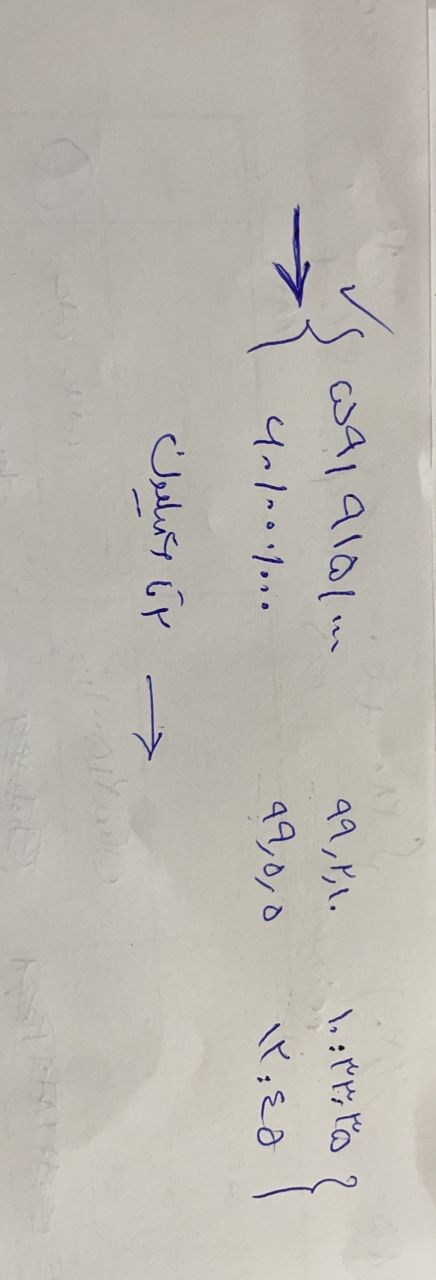 ۵۹/۹۱۵/۰۰۰ ۹۹,۲,۱۰ ۱۰:۳۳,۳۵
۶۰/۰۰۰/۰۰۰ ۹۹,۵,۵ ۱۲:۴۵
۲ تا ۶ میلیون